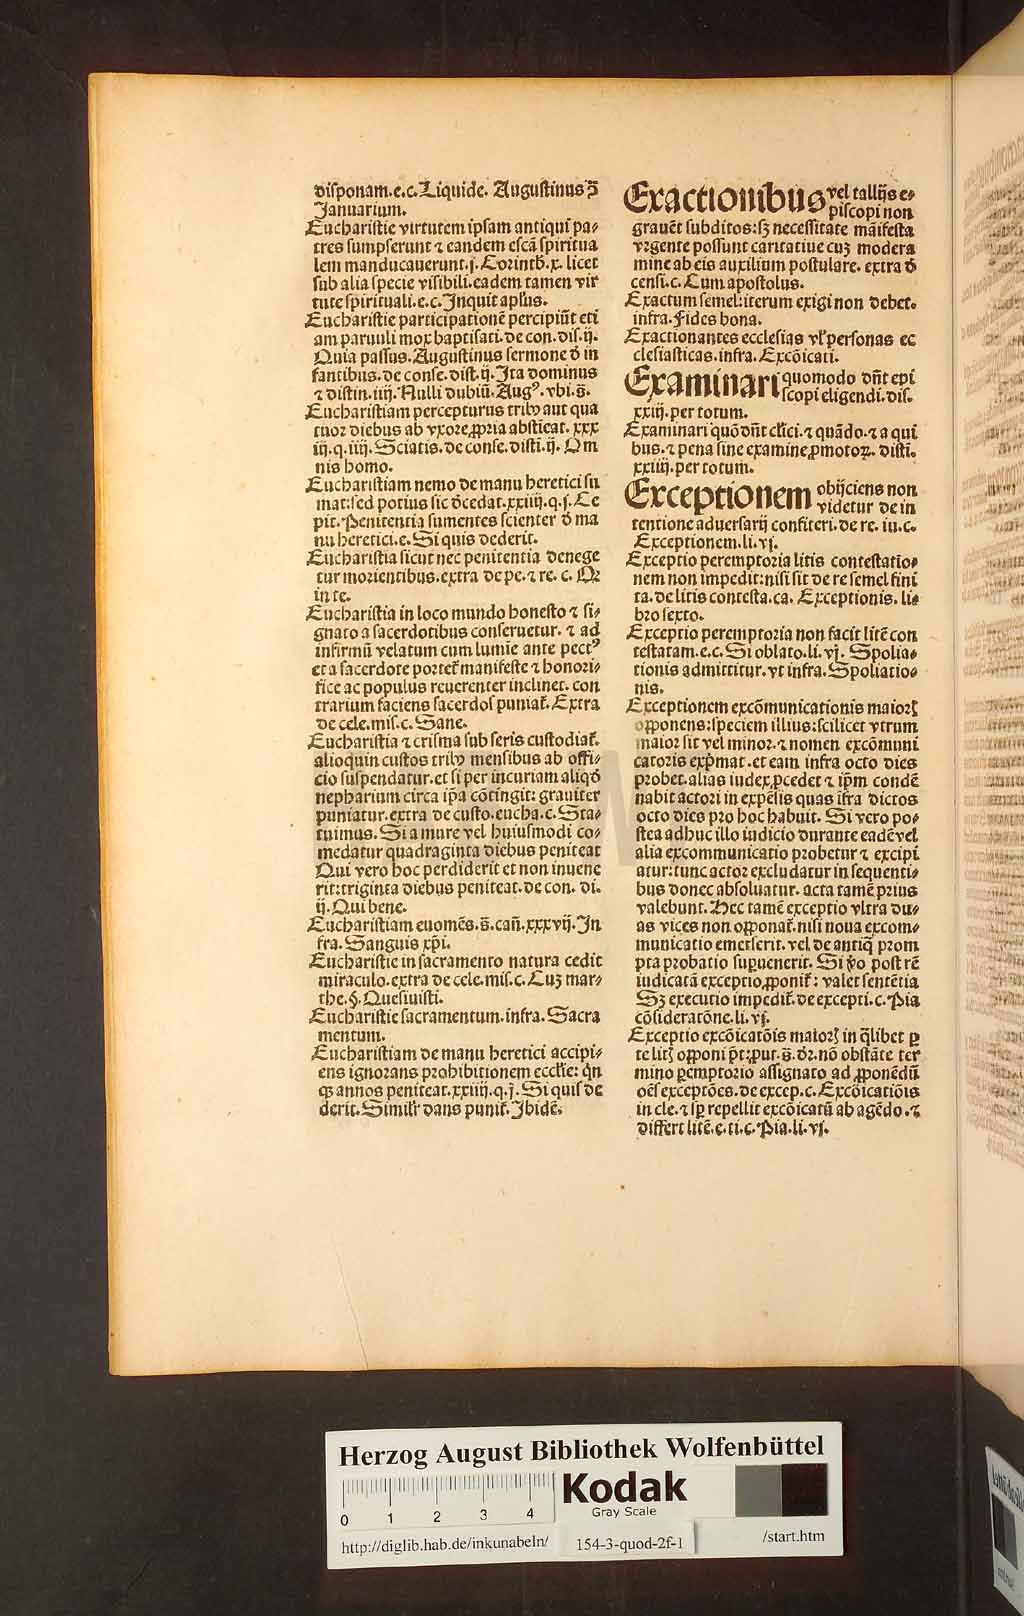 disponam.e.c.Liquide. Augustinus ꝫ̄
Januarium.
Eucharistie virtutem ipsam antiqui pa⸗
tres sumpserunt ⁊ eandem escā spiritua
lem manducauerunt.j. Corinth.x. licet
sub alia specie visibili.eadem tamen vir
tute spirituali.e.c. Inquit apl̄us.
Eucharistie participationē percipiūt eti
am paruuli mox baptisati.de con.dis.ij.
Quia passus. Augustinus sermone ď in
fantibus.de conse.dist.ij. Ita dominus
⁊ distin.iiij. Nulli dubiū. Augꝰ. vbi.s̄.
Eucharistiam percepturus tribꝰ aut qua
tuor diebus ab vxore ꝓpria abstieat. xxx
iij.q.iiij. Sciatis.de conse.disti.ij. Om
nis homo.
Eucharistiam nemo de manu heretici su
mat:sed potius sic ďcedat.xxiiij.q.j. Ce
pit. Penitentia sumentes scienter ď ma
nu heretici.e. Si quis dederit.
Eucharistia sicut nec penitentia denege
tur morientibus.extra de pe.⁊ re. c. Qꝛ
in te.
Eucharistia in loco mundo honesto ⁊ si⸗
gnato a sacerdotibus conseruetur. ⁊ ad
infirmū velatum cum lumie ante pectꝰ
et a sacerdote portet̄ manifeste ⁊ honori⸗
fice ac populus reuerenter inclinet. con
trarium faciens sacerdos puniat̄. Extra
de cele.mis.c. Sane.
Eucharistia ⁊ crisma sub seris custodiat̄.
alioquin custos tribꝰ mensibus ab offi⸗
cio suspendatur.et si per incuriam aliqď
nepharium circa ip̄a cōtingit: grauiter
puniatur.extra de custo.eucha.c. Sta⸗
tuimus. Si a mure vel huiusmodi co⸗
medatur quadraginta diebus peniteat
Qui vero hoc perdiderit et non inuene
rit:triginta diebus peniteat.de con. di.
ij. Qui bene.
Eucharistiam euomēs.s̄.cañ.xxxvij. In
fra. Sanguis xp̄i.
Eucharistie in sacramento natura cedit
miraculo.extra de cele.mis.c. Cuꝫ mar⸗
the.§. Quesiuisti.
Eucharistie sacramentum.infra. Sacra
mentum.
Eucharistiam de manu heretici accipi⸗
ens ignorans prohibitionem eccl̄ie: qn̄
qꝫ annos peniteat.xxiiij.q.j. Si quis de
derit. Simil̄r dans punit̄. Ibidē.
Exactionibus vel tallijs e⸗
piscopi non
grauēt subditos:sꝫ necessitate māifesta
vrgente possunt caritatiue cuꝫ modera
mine ab eis auxilium postulare. extra ď
censi.c. Cum apostolus.
Exactum semel:iterum exigi non debet.
infra. Fides bona.
Exactionantes ecclesias vl̓ personas ec
clesiasticas.infra. Excōicati.
Examinari quomodo dn̄t epi
scopi eligendi.dis.
xxiij.per totum.
Examinari quō dn̄t cl̄ici.⁊ quādo.⁊ a qui
bus.⁊ pena sine examine ꝓmotoꝝ. disti.
xxiiij.per totum.
Exceptionem obijciens non
videtur de in
tentione aduersarij confiteri.de re. iu.c.
Exceptionem.li.vj.
Exceptio peremptoria litis contestatio⸗
nem non impedit:nisi sit de re semel fini
ta.de litis contesta.ca. Exceptionis. li⸗
bro sexto.
Exceptio peremptoria non facit litē con
testatam.e.c. Si oblato.li.vj. Spolia⸗
tionis admittitur.vt infra. Spoliatio⸗
nis.
Exceptionem excōmunicationis maioris
opponens:speciem illius:scilicet vtrum
maior sit vel minor.⁊ nomen excōmuni
catoris exp̄mat.et eam infra octo dies
probet.alias iudex ꝓcedet ⁊ ip̄m condē
nabit actori in expēsis quas ifra dictos
octo dies pro hoc habuit. Si vero po⸗
stea adhuc illo iudicio durante eadē vel
alia excommunicatio probetur ⁊ excipi
atur:tunc actor excludatur in sequenti⸗
bus donec absoluatur. acta tamē prius
valebunt. Hec tamē exceptio vltra du⸗
as vices non opponat̄.nisi noua excom⸗
municatio emerserit.vel de antiq̄ prom
pta probatio suꝑuenerit. Si v̓o post rē
iudicatā exceptio opponit̄: valet sentētia
Sꝫ executio impedit̄.de excepti.c. Pia
cōsideratōne.li.vj.
Exceptio excōicatōis maioris in q̄libet ꝑ
te litis opponi pōt:put.s̄.dr̄.nō obstāte ter
mino ꝑemptorio assignato ad ꝓponēdū
oēs exceptōes.de excep.c. Excōicatiōis
in cle.⁊ sꝑ repellit excōicatū ab agēdo.⁊
differt litē.e.ti.c. Pia.li.vj.
Herzog August Bibliothek Wolfenbüttel
0 1 2 3 4
Kodak
Gray Scale
http://diglib.hab.de/inkunabeln/ 154-3-quod-2f-1 /start.htm